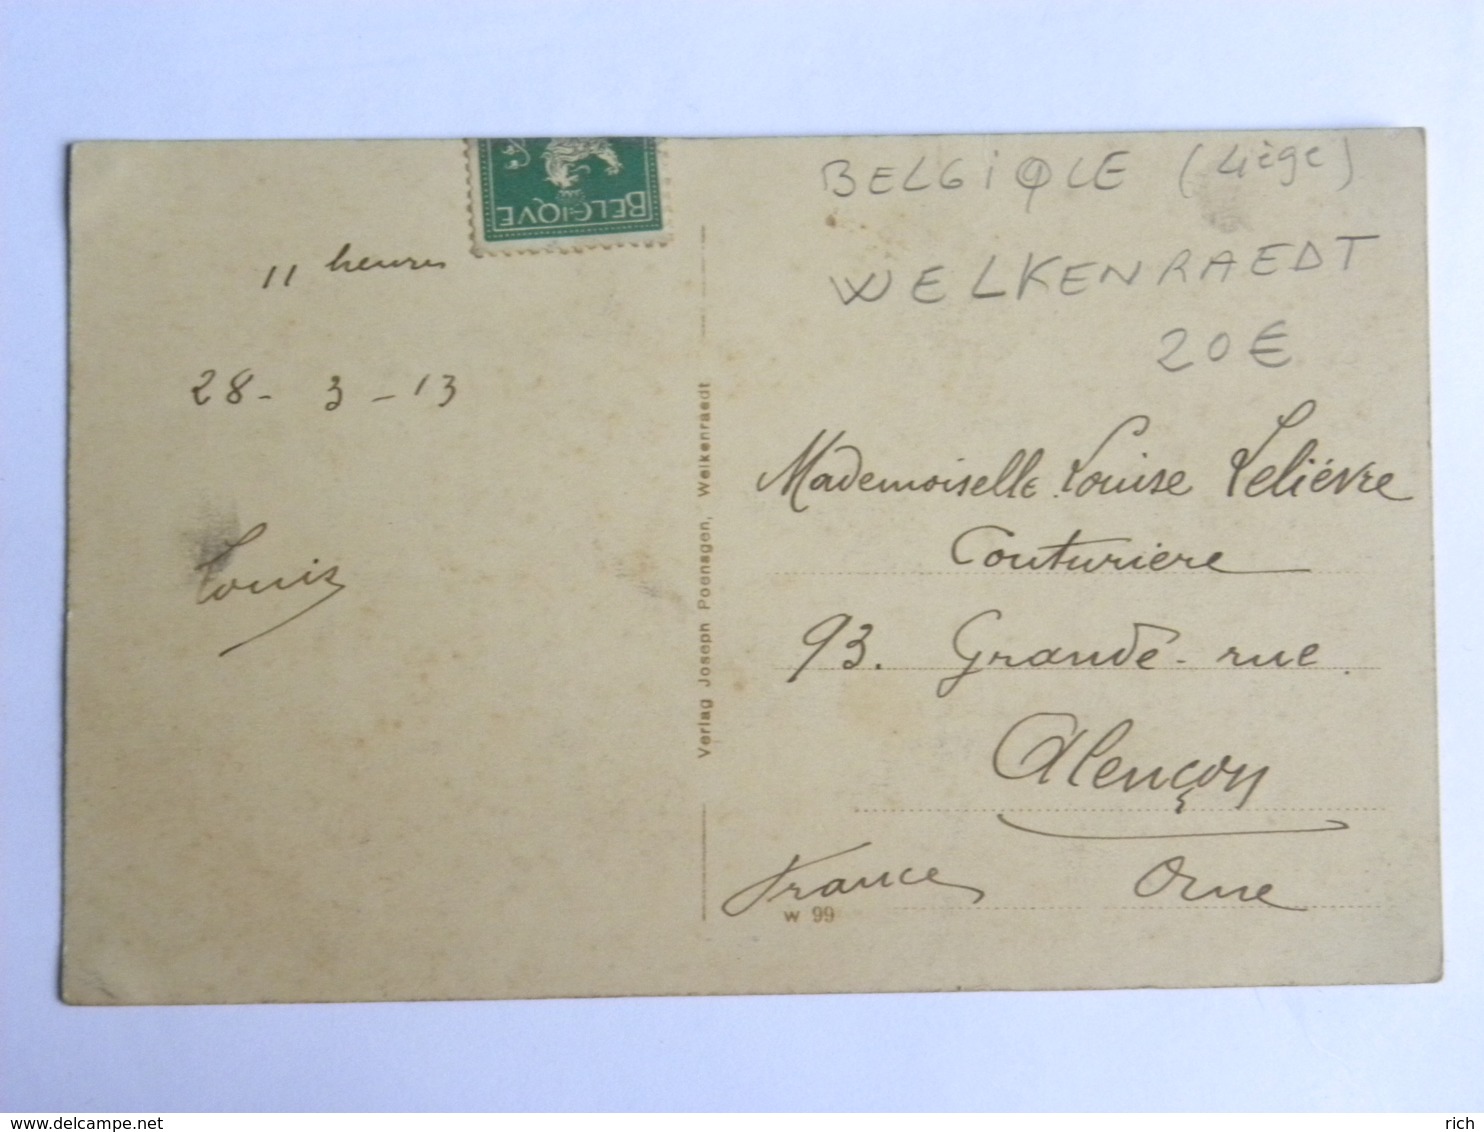 BELGIQUE
BELGIQUE (Liège)
WELKENRAEDT
20€
11 heures
28 - 3 - 13
Louis
Verlag Joseph Poensgen, Welkenraedt
Mademoiselle Louise Lelièvre
Couturiere
93. Grande-rue.
Alençon
France Orne
W 99
delcampe.net
rich